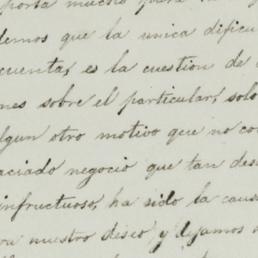 porta mucho para
demos que la unica dificu
cuenta, es la cuestion de
nes sobre el particular, solo
algun otro motivo que no co
aciado negocio que tan des
infructuoso, ha sido la caus
con nuestro deseo, y dejamos